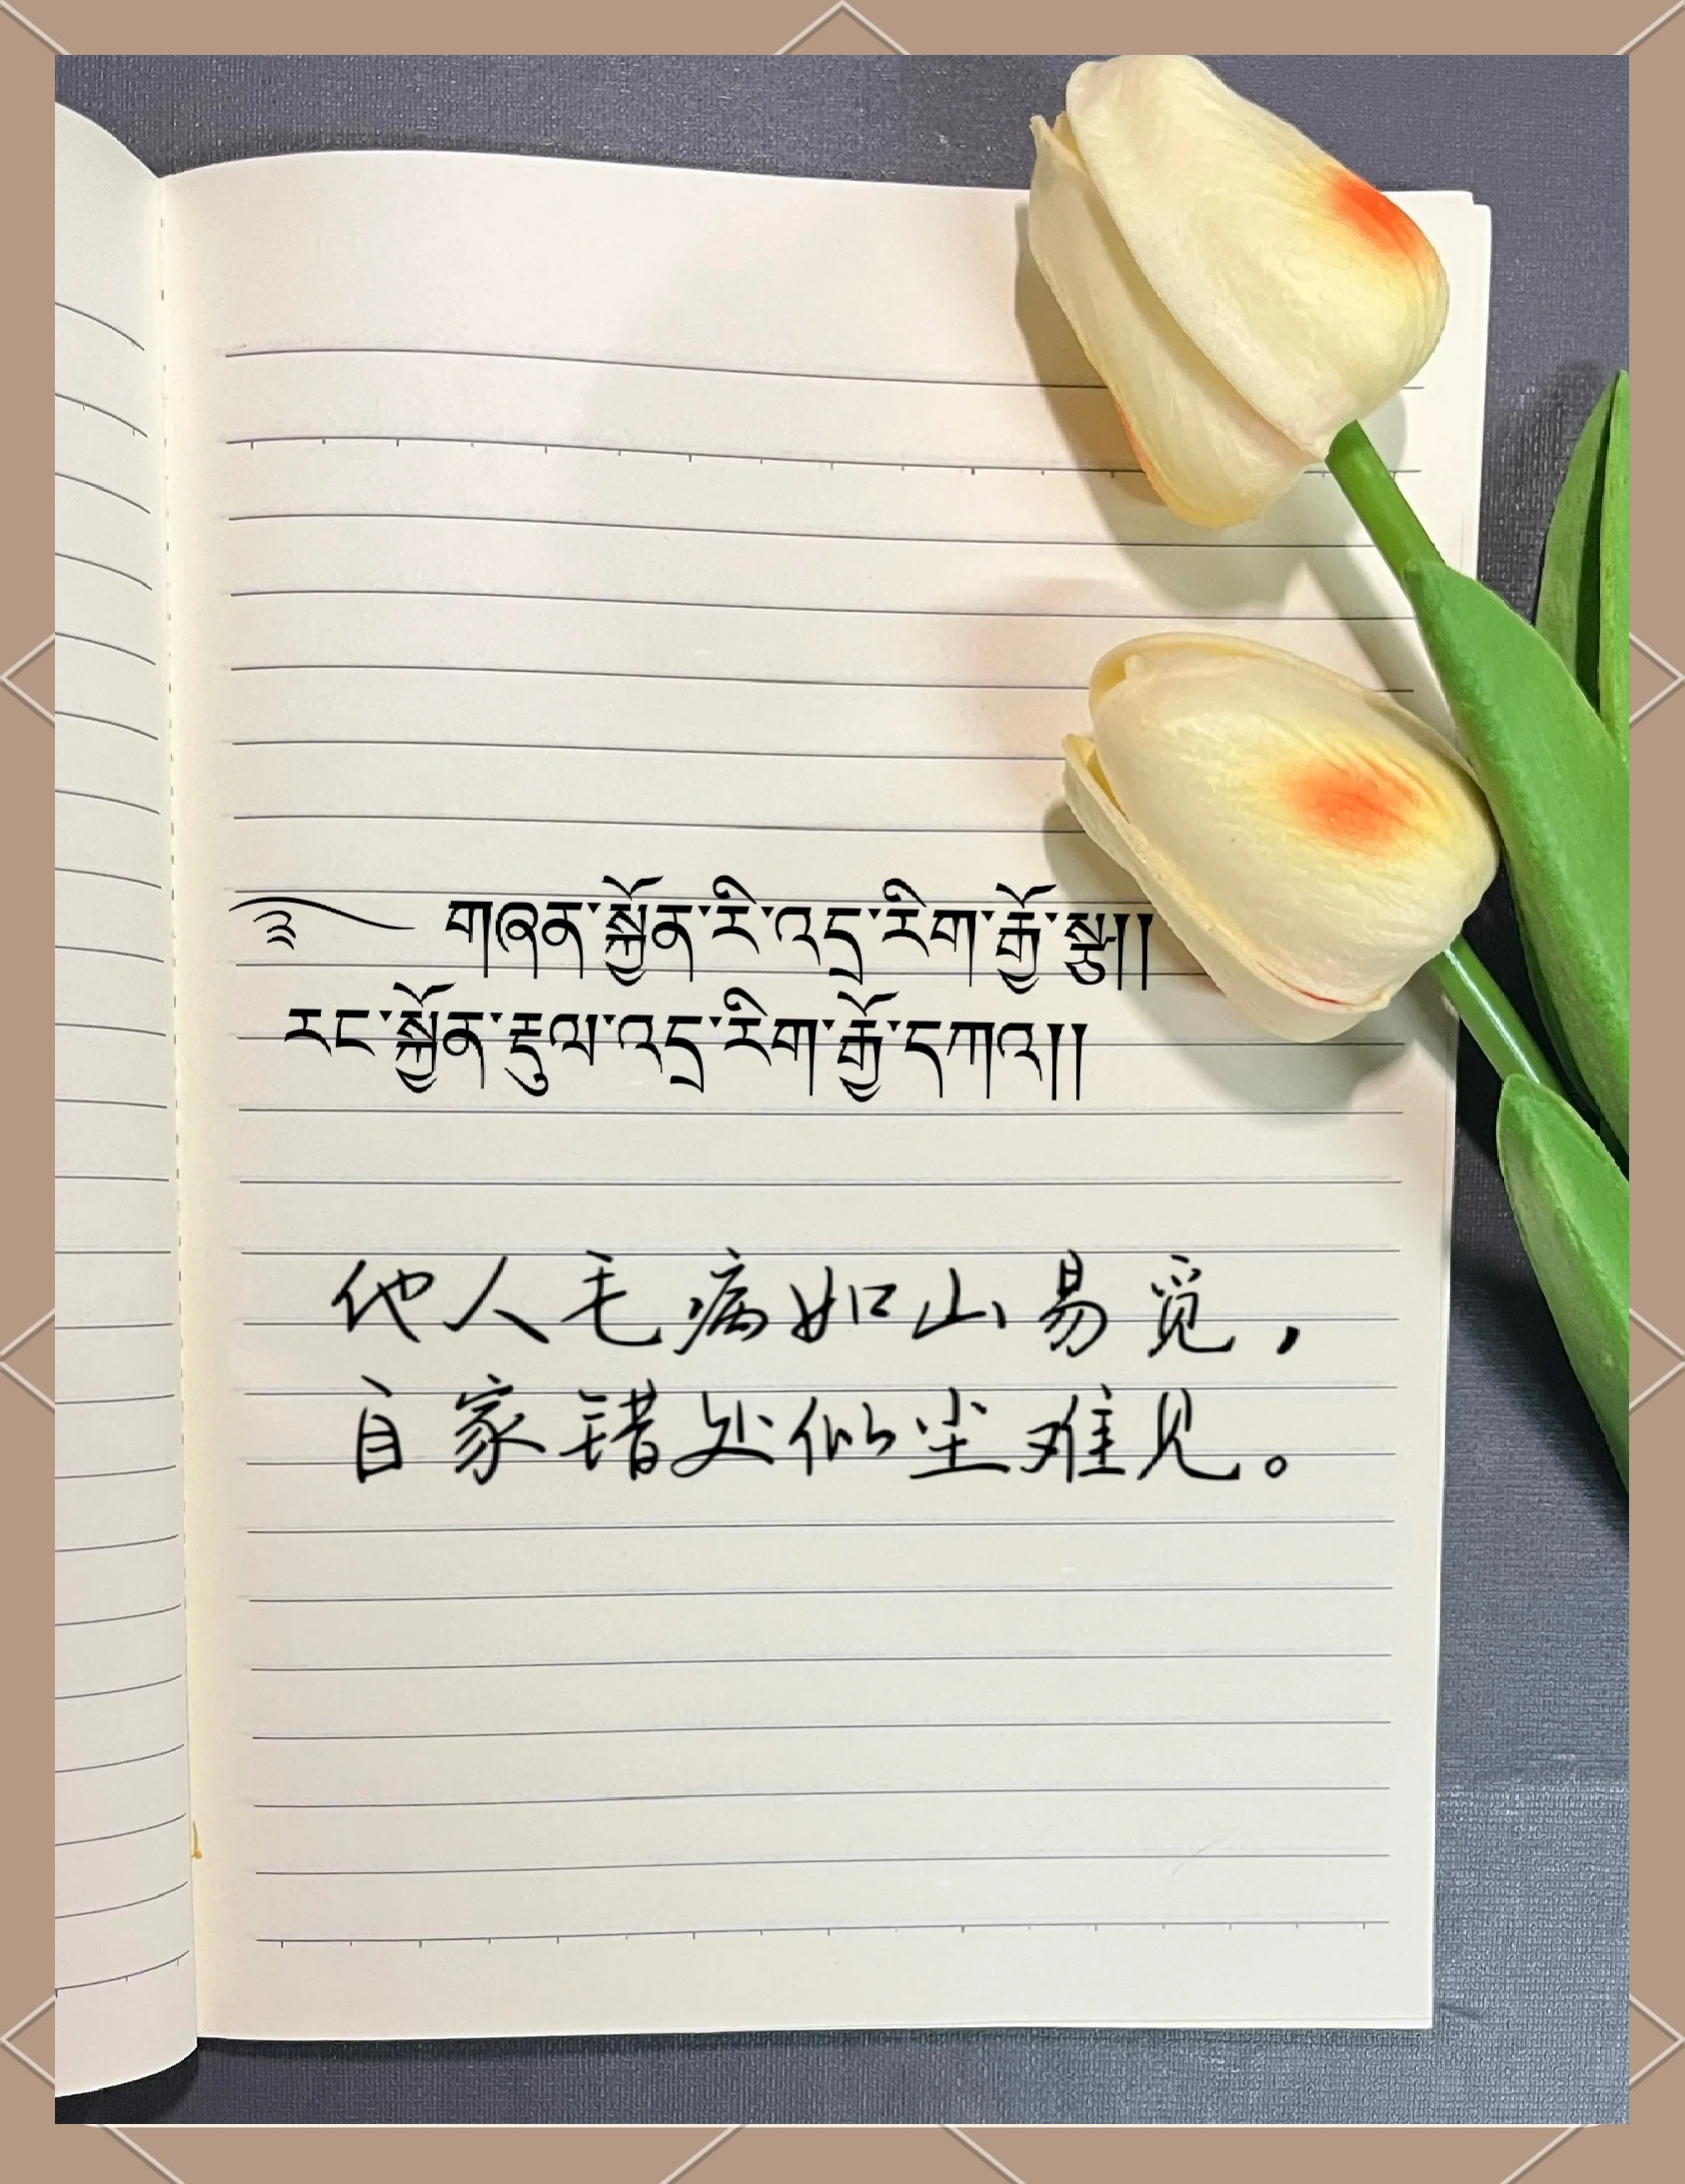 ༄ གཞན་སྐྱོན་རི་འདྲ་རིག་རྒྱོ་སླ།།
རང་སྐྱོན་རྡུལ་འདྲ་རིག་རྒྱོ་དཀའ།།
他人毛病如山易觅，
自家错处似尘难见。